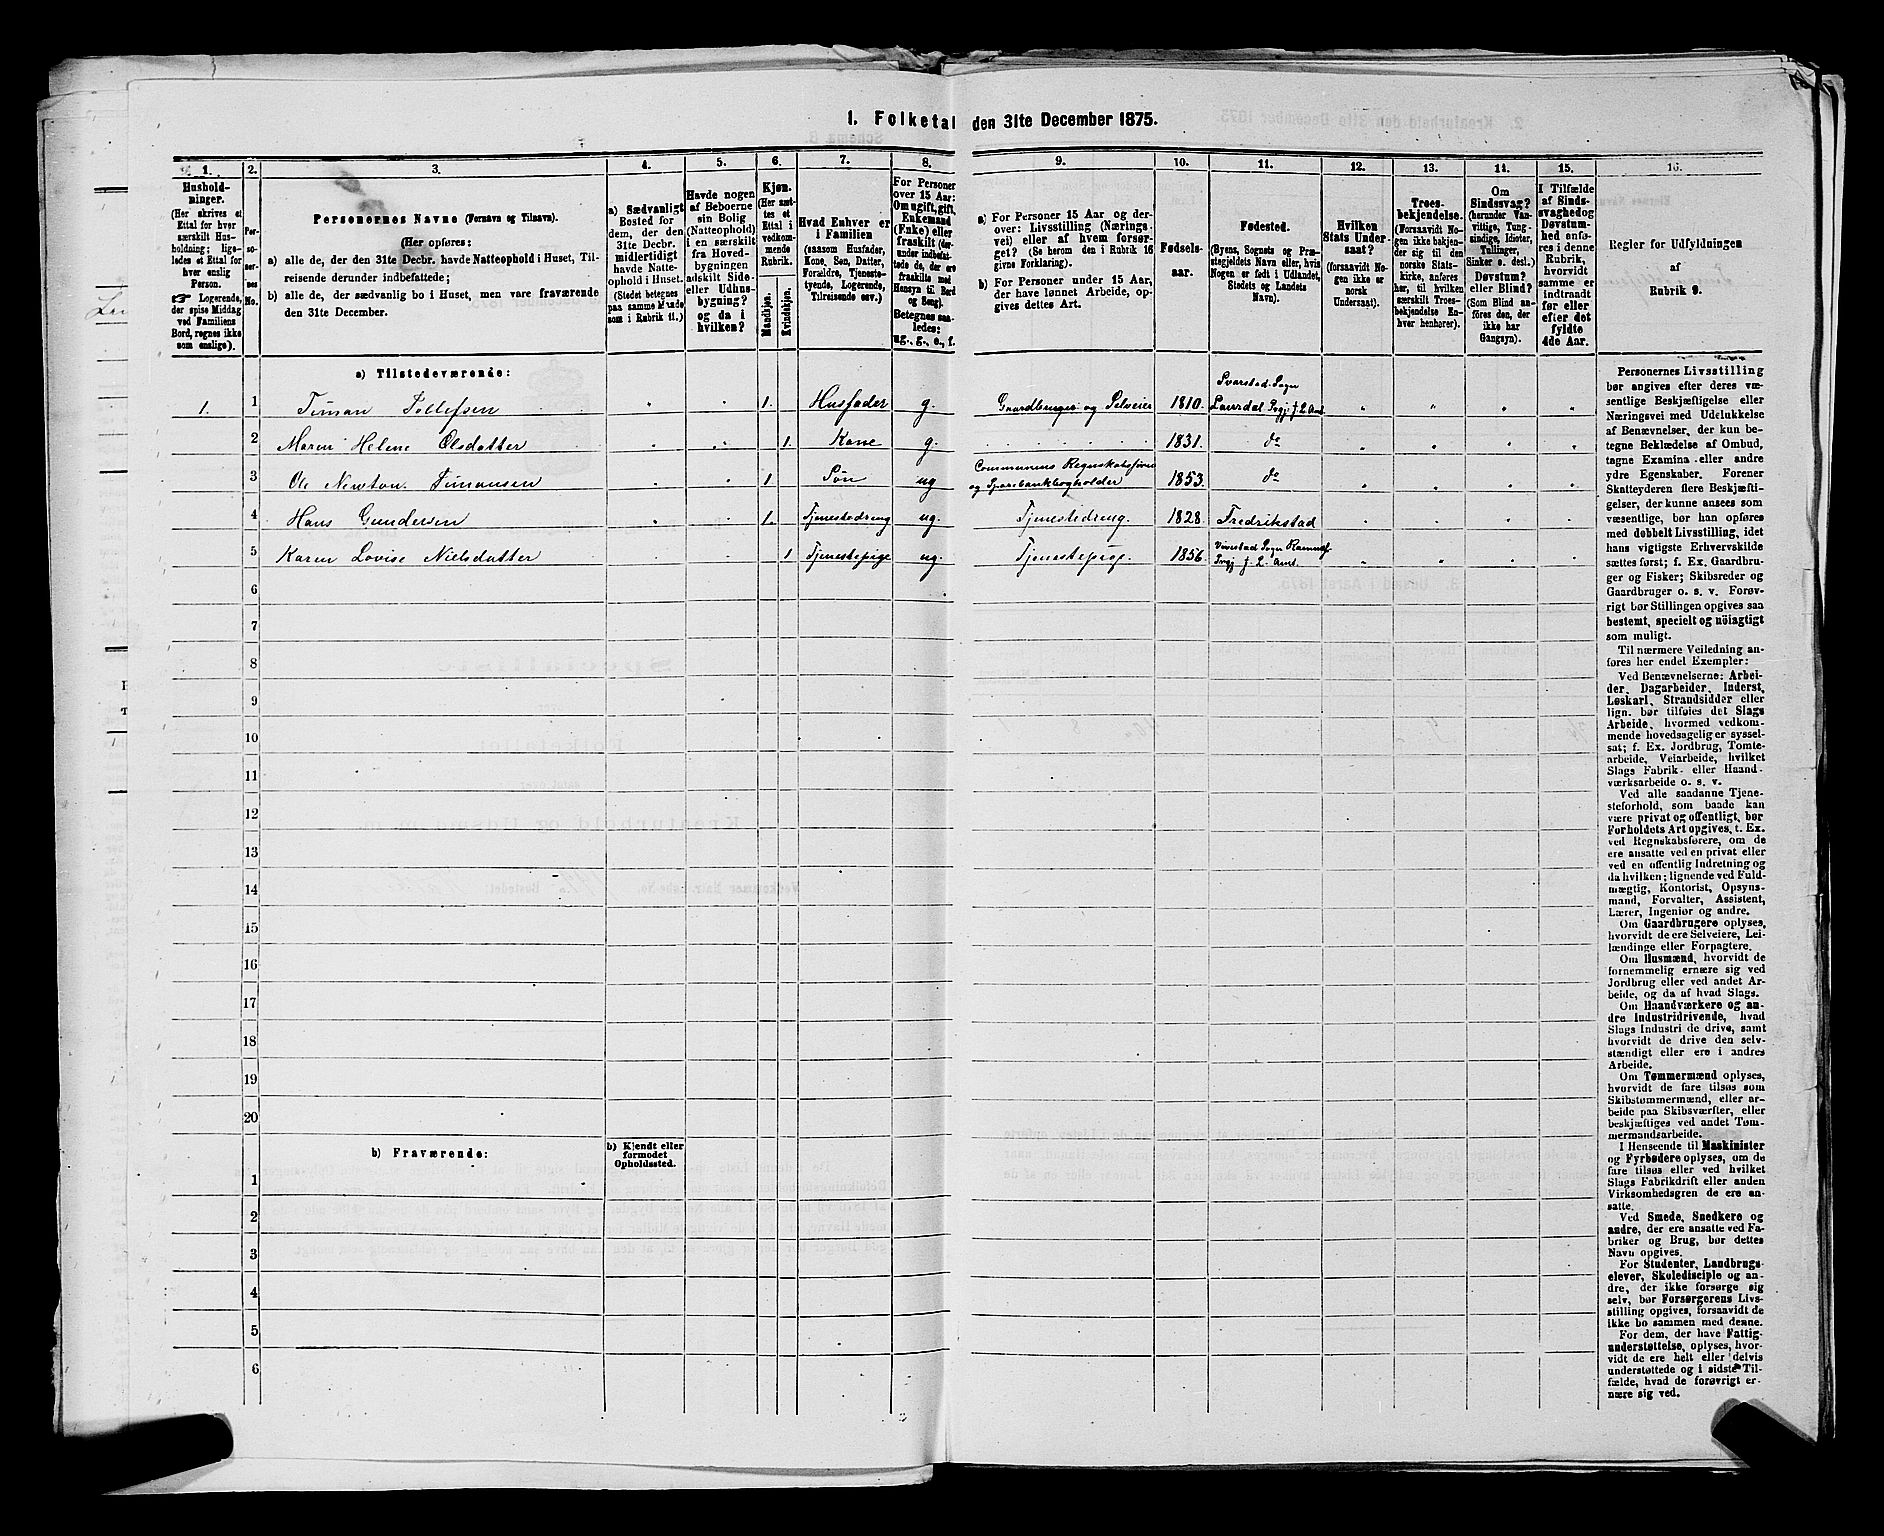 1. Folketal den 31te December 1875.
1.
2.
3.
4.
5.
6.
7.
8.
9.
10.
11.
12.
13.
14.
15.
16.
Hushold-
ninger.
(Her skrives et
Ettal for hver
særskilt Hus-
holdning; lige-
ledes et Ettal for
hver enslig
Person.
☞ Logerende,
der spise Middag
ved Familiens
Bord, regnes ikke
som enslige).
Per-
so-
ner-
nes
No.
Personernes Navne (Fornavn og Tilnavn).
(Her opføres:
a) alle de, der den 31te Decbr. havde Natteophold i Huset, Til-
reisende derunder indbefattede;
b) alle de, der sædvanlig bo i Huset, men vare fraværende
den 31te December.
a) Sædvanligt
Bosted for
dem, der den
31te Decbr.
midlertidigt
havde Natte-
ophold i Huset.
(Stedet betegnes
paa samme Maade
som i Rubrik 11.)
Havde nogen
af Beboerne
sin Bolig
(Natteophold)
i en særskilt
fra Hoved-
bygningen
adskilt Side-
eller Udhus-
bygning?
og da i
hvilken?
Kjøn.
(Her sæt-
tes et
Ettal i
vedkom-
mende
Rubrik.
Mandkjøn.
Kvindekjøn.
Hvad Enhver er
i Familien
(saasom Husfader,
Kone, Søn, Datter,
Forældre, Tjeneste-
tyende, Logerende,
Tilreisende osv.)
For Personer
over 15 Aar:
Om ugift, gift,
Enkemand
(Enke) eller
fraskilt (der-
under indbefat-
tede de, der ere
fraskilte med
Hensyn til Bord
og Seng).
Betegnes saa-
ledes:
ug., g., e., f.
a) For Personer 15 Aar og der-
over: Livsstilling (Nærings-
vei) eller af hvem forsør-
get? (Se herom den i Rubrik 16
givne Forklaring).
b) For Personer under 15 Aar,
der have lønnet Arbeide, op-
gives dettes Art.
Fødsels-
aar.
Fødested.
(Byens, Sognets og Præ-
stegjeldets Navn eller, hvis
Nogen er født i Udlandet,
Stedets og Landets
Navn).
Hvilken
Stats Under-
saat?
(forsaavidt No-
gen ikke er
norsk
Undersaat).
Troes-
bekjendelse.
(Forsaavidt No-
gen ikke bekjen-
der sig til den
norske Stats-
kirke, anføres
her, til hvilken
særskilt Troes-
bekjendelse En-
hver henhører).
Om
Sindssvag?
(herunder Van-
vittige, Tung-
sindige, Idioter,
Tullinger,
Sinker o. desl.)
Døvstum?
eller Blind?
(Som Blind an-
føres den, der
ikke har
Gangsyn).
I Tilfælde
af Sinds-
svaghed og
Døvstum-
hed anfø-
res i denne
Rubrik,
hvorvidt
samme er
indtraadt
før eller
efter det
fyldte
4de Aar.
Regler for Udfyldningen
af
Rubrik 9.
a) Tilstedeværende:
1. 1 Timan Tollefsen 1. Husfader g. Gaardbruger og Selveier 1810. Svarstad Sogn
Laurdal Prgj. J. L. Amt.
2 Maren Helene Olsdatter 1. Kone g. 1831. do
3 Ole Newton Timansen 1. Søn ug Communens Regnskabsfører
og Sparebankbogholder 1853. do
4 Hans Gundersen 1. Tjenestedreng ug. Tjenestedreng. 1828. Fredrikstad
5 Karen Lovise Nielsdatter 1 Tjenestepige ug. Tjenestepige. 1856. Vivestad Sogn Ramnæs
Prgj. J. L. Amt.
6
7
8
9
10
11
12
13
14
15
16
17
18
19
20
b) Fraværende:
b) Kjendt eller
formodet
Opholdssted.
1
2
3
4
5
6
Personernes Livsstilling
bør angives efter deres væ-
sentlige Beskjæftigelse eller
Næringsvei med Udelukkelse
af Benævnelser, der kun be-
tegne Beklædelse af Ombud,
tagne Examina eller andre
ydre Egenskaber. Forener
Skatteyderen flere Beskjæfti-
gelser, der kunne ansees som
væsentlige, bør han opføres
med dobbelt Livsstilling, idet
hans vigtigste Erhvervskilde
sættes først; f. Ex. Gaardbru-
ger og Fisker; Skibsreder og
Gaardbruger o. s. v. Forøv-
rigt bør Stillingen opgives saa
bestemt, specielt og nøiagtigt
som muligt.
Til nærmere Veiledning an-
føres her endel Exempler:
Ved Benævnelserne: Arbei-
der, Dagarbeider, Inderst,
Løskarl, Strandsidder eller
lign. bør tilføies det Slags
Arbeide, hvormed vedkom-
mende hovedsagelig er syssel-
sat; f. Ex. Jordbrug, Tomte-
arbeide, Veiarbeide, hvilket
Slags Fabrik- eller Haand-
værksarbeide o. s. v.
Ved alle saadanne Tjene-
steforhold, som baade kan
være privat og offentligt, bør
Forholdets Art opgives, t. Ex.
ved Regnskabsførere, om de
ere ansatte ved en privat eller
ved en offentlig Indretning og
da hvilken; lignende ved Fuld-
mægtig, Kontorist, Opsyns-
mand, Forvalter, Assistent,
Lærer, Ingeniør og andre.
Om Gaardbrugere oplyses,
hvorvidt de ere Selveiere, Lei-
lændinge eller Forpagtere.
Om Husmænd, hvorvidt de
fornemmelig ernære sig ved
Jordbrug eller ved andet Ar-
beide, og da af hvad Slags.
Om Haandværkere og an-
dre Industridrivende, hvad
Slags Industri de drive, samt
hvorvidt de drive den selv-
stændigt eller ere i andres
Arbeide.
Om Tømmermænd oplyses,
hvorvidt de fare tilsøs som
Skibstømmermænd, eller ar-
beide paa Skibsværfter, eller
beskjæftiges ved andet Tøm-
mermandsarbeide.
I Henseende til Maskinister
og Fyrbødere oplyses, om de
fare tilsøs eller ved hvilket
Slags Fabrikdrift eller anden
Virksomhedsgren de ere an-
satte.
Ved Smede, Snedkere og
andre, der ere ansatte ved Fa-
briker og Brug, bør dettes
Navn opgives.
For Studenter, Landbrugs-
elever, Skoledisciple og an-
dre, der ikke forsørge sig
selv, bør Forsørgerens Livs-
stilling opgives, forsaavidt de
ikke bo sammen med denne.
For dem, der have Fattig-
understøttelse, oplyses, hvor-
vidt de ere helt eller delvis
understøttede og i sidste Til-
fælde, hvad de forøvrigt er-
nære sig ved.